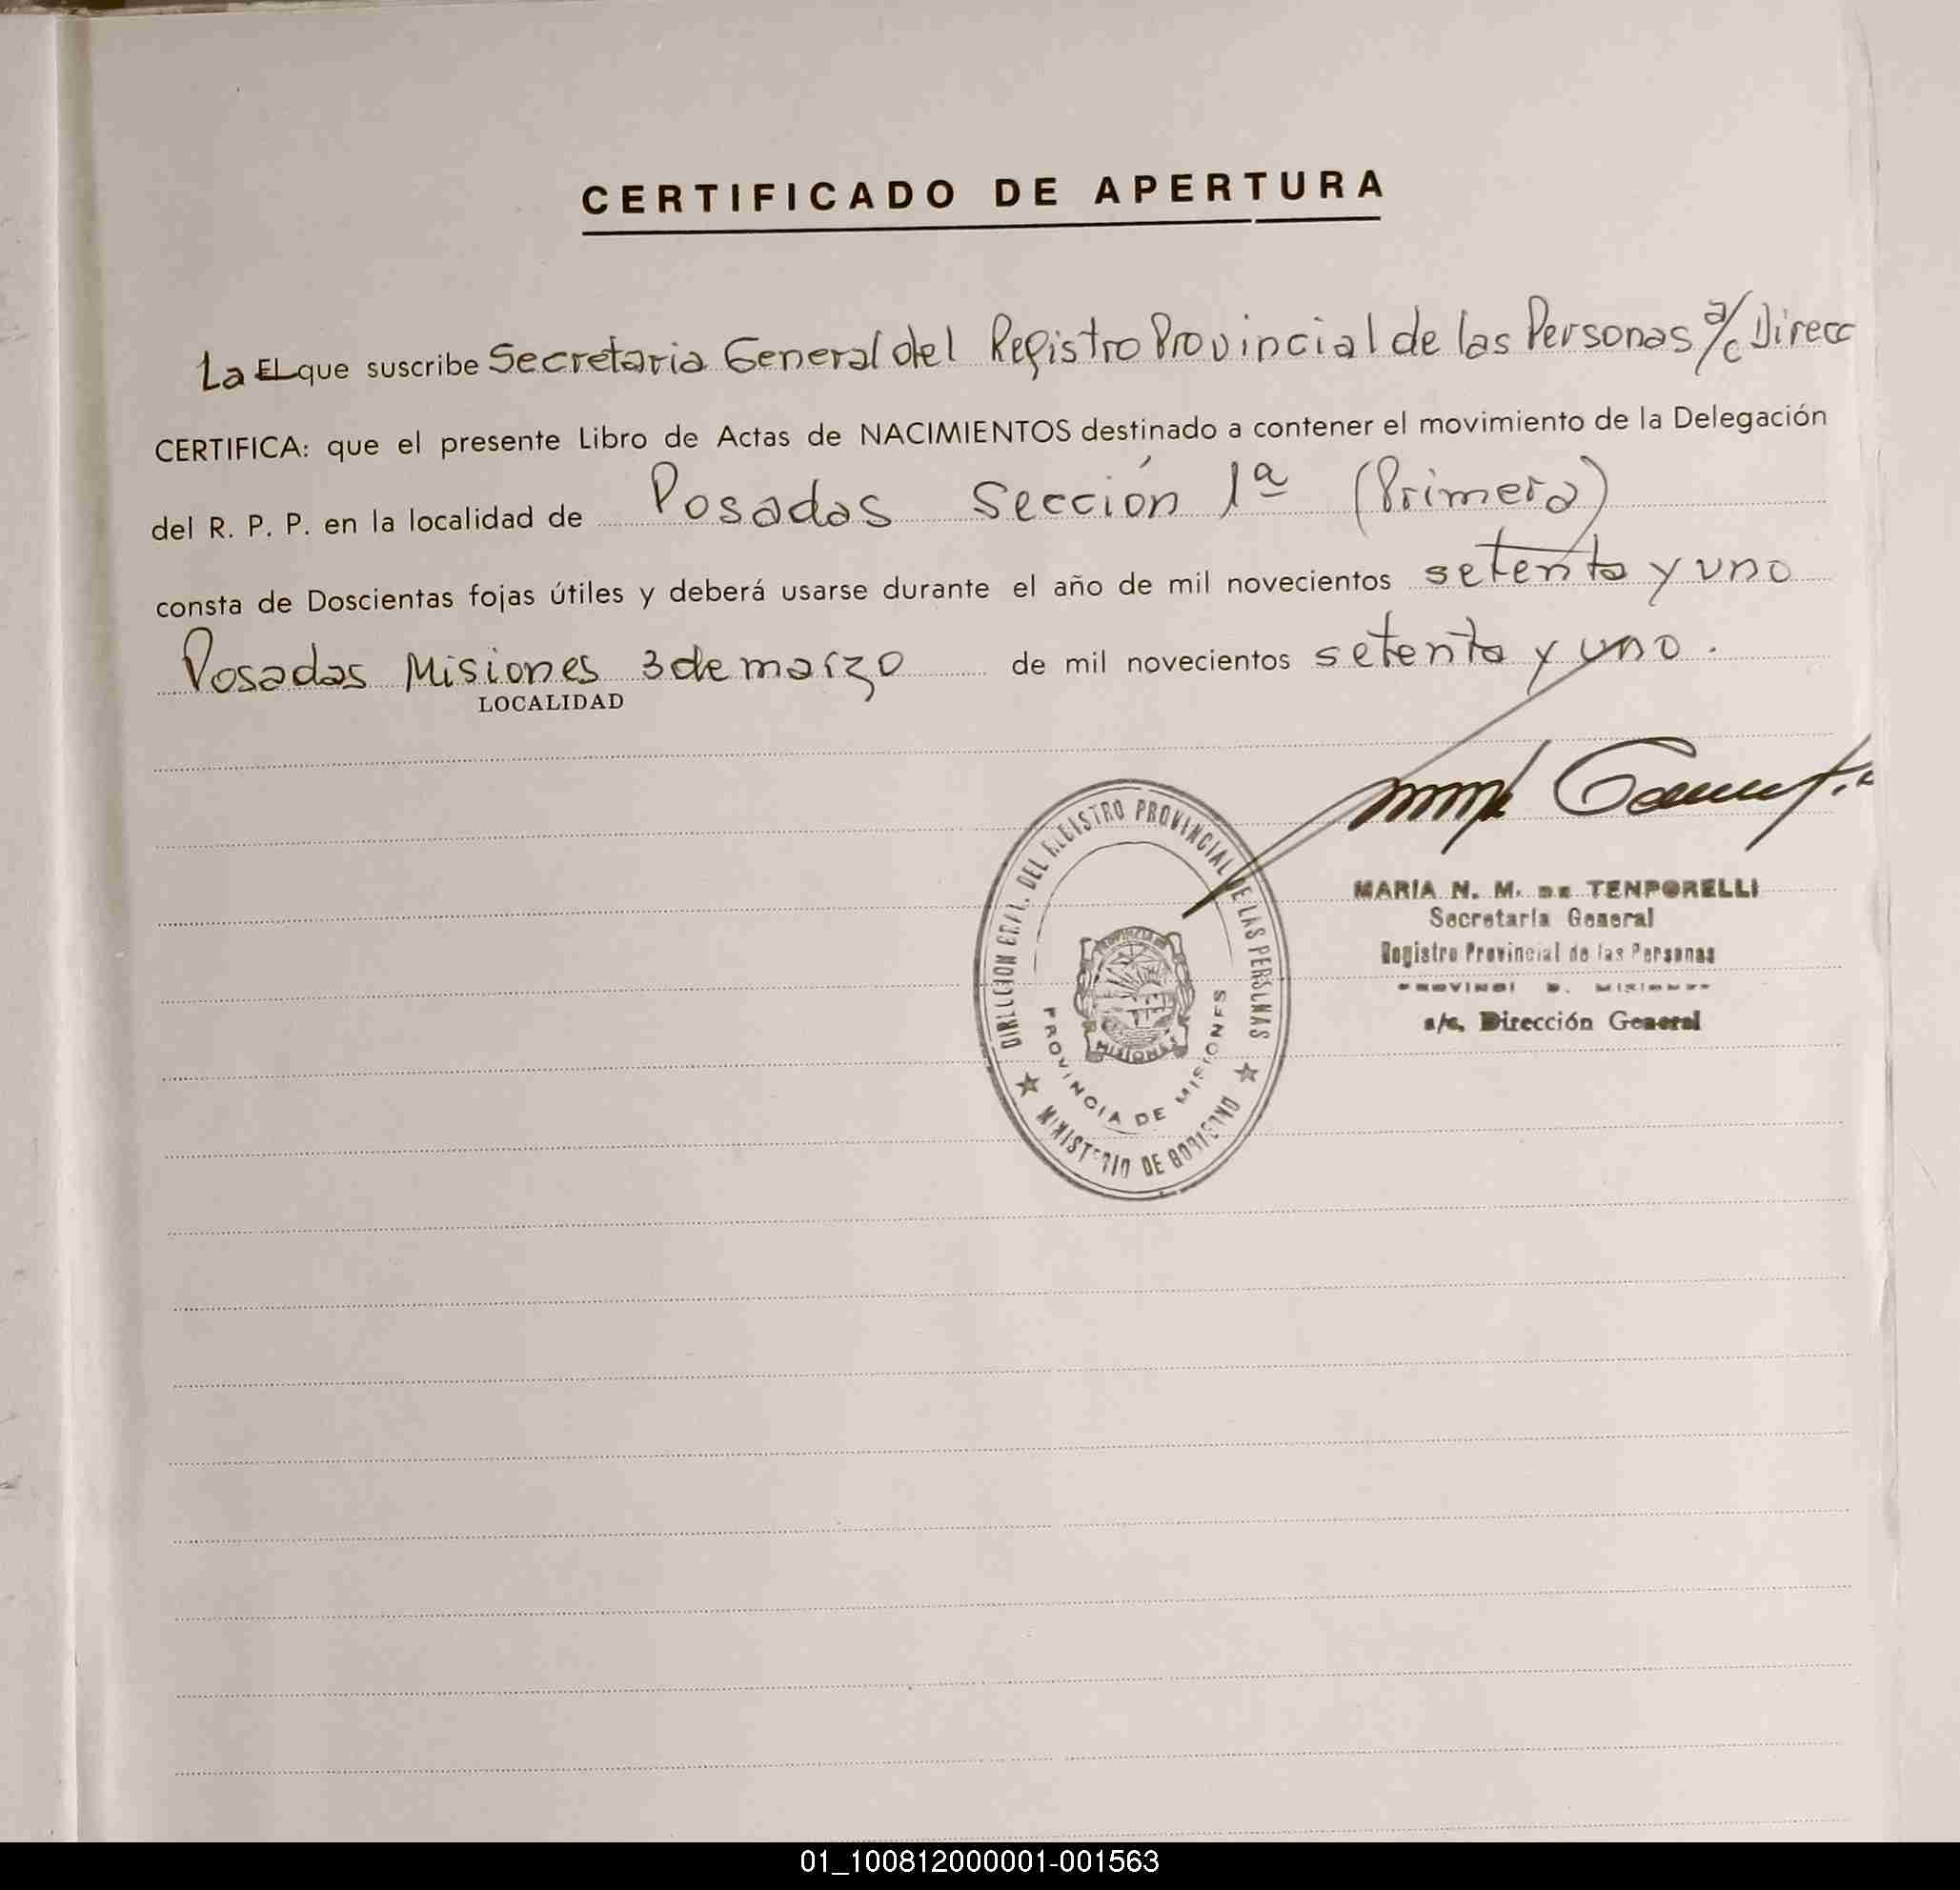 CERTIFICADO DE APERTURA
La EL que suscribe Secretaria General del Registro Provincial de las Personas a/c Direcc
CERTIFICA: que el presente Libro de Actas de NACIMIENTOS destinado a contener el movimiento de la Delegación
del R. P. P. en la localidad de Posadas Sección 1ª (Primera)
consta de Doscientas fojas útiles y deberá usarse durante el año de mil novecientos setenta y uno
Posadas Misiones 3 de marzo de mil novecientos setenta y uno.
LOCALIDAD
DIRECCION GRAL. DEL REGISTRO PROVINCIAL DE LAS PERSONAS
PROVINCIA DE
MISIONES
PROVINCIA DE MISIONES
★ MINISTERIO DE GOBIERNO ★
MARIA N. M. DE TENPORELLI
Secretaría General
Registro Provincial de las Personas
a/c. Dirección General
01_100812000001-001563